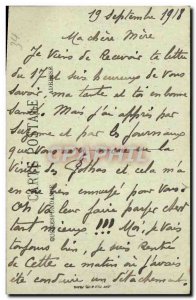 19 Septembre 1918
Ma chère Mère
Je viens de Recevoir ta lettre
du 17 et suis heureux de vous
savoir, ma tante et toi en bonne
santé. Mais j'ai appris par
et par les journaux
que vous la
visite des Gothas et cela m'a
ennuyé pour vous.
On leur faire payer cher
tant mieux !!! Moi, je vais
toujours bien, je suis Rentré
de Cette ce matin où j'avais
été conduire un détachement
CARTE POSTALE